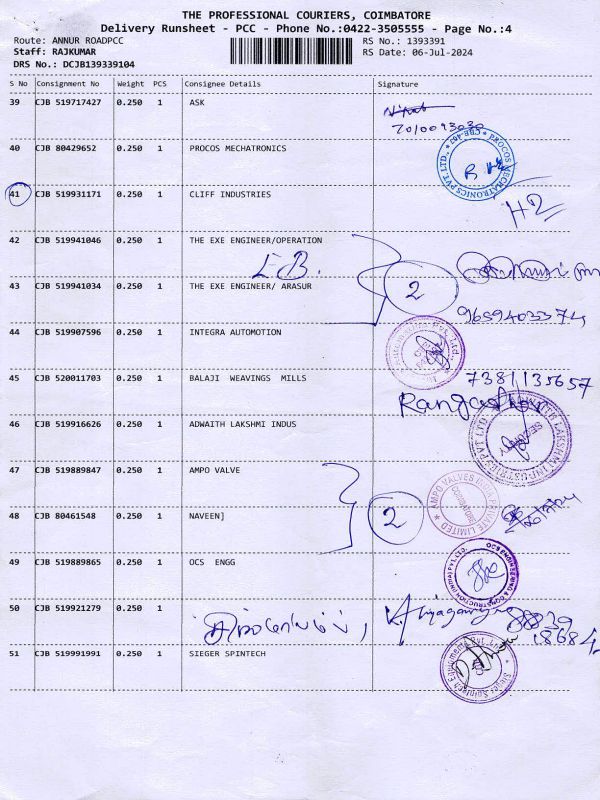 THE PROFESSIONAL COURIERS, COIMBATORE
Delivery Runsheet - PCC - Phone No.:0422-3505555 - Page No.:4
Route: ANNUR ROADPCC RS No.: 1393391
Staff: RAJKUMAR RS Date: 06-Jul-2024
DRS No.: DCJB139339104
S No Consignment No Weight PCS Consignee Details Signature
39 CJB 519717427 0.250 1 ASK
40 CJB 80429652 0.250 1 PROCOS MECHATRONICS
PROCOS MECHATRONICS PVT. LTD.
41 CJB 519931171 0.250 1 CLIFF INDUSTRIES
42 CJB 519941046 0.250 1 THE EXE ENGINEER/OPERATION
EB. 2
43 CJB 519941034 0.250 1 THE EXE ENGINEER/ ARASUR
44 CJB 519907596 0.250 1 INTEGRA AUTOMOTION
45 CJB 520011703 0.250 1 BALAJI WEAVINGS MILLS 7381135657
46 CJB 519916626 0.250 1 ADWAITH LAKSHMI INDUS
ADWAITH LAKSHMI INDUSTRIES PVT LTD SECURITY
47 CJB 519889847 0.250 1 AMPO VALVE
AMPO VALVES INDIA PRIVATE LIMITED COIMBATORE
48 CJB 80461548 0.250 1 NAVEEN] 2
49 CJB 519889865 0.250 1 OCS ENGG
OCS ENGINEERING & CONSTRUCTION (INDIA) PVT. LTD.
50 CJB 519921279 0.250 1
51 CJB 519991991 0.250 1 SIEGER SPINTECH
Sieger Spintech Equipments Pvt. Ltd.